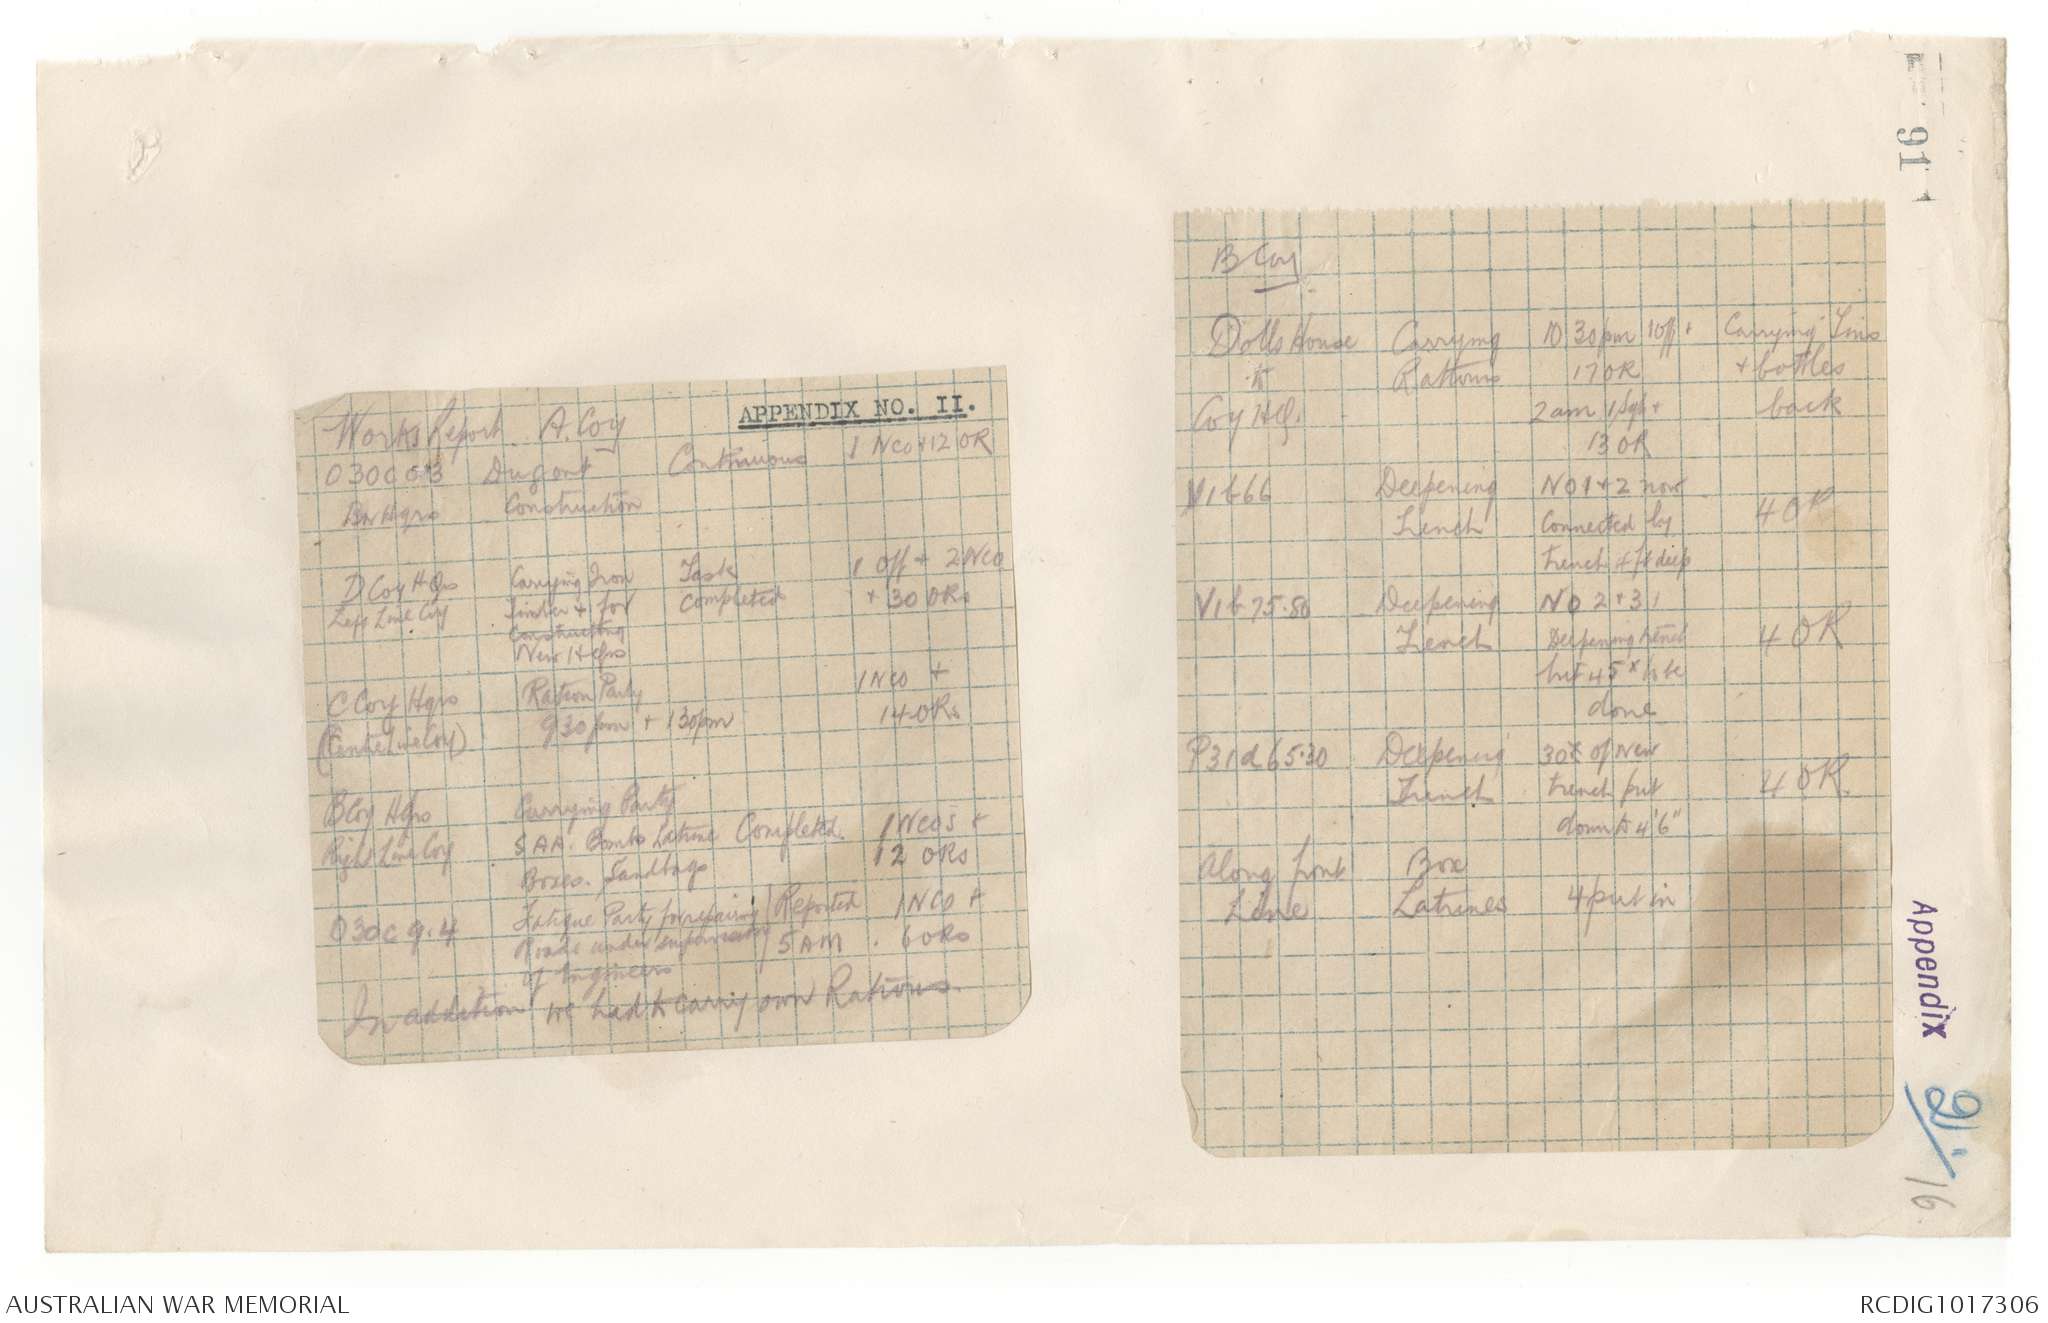 APPENDIX NO. II.
Works Report A. Coy
O30c 0.3 Dugout Continuous 1 NCO + 12 OR
Bn Hqrs Construction
D Coy HQrs Carrying Iron Task 1 Off + 2 NCO
Left Line Coy Timber + for completed + 30 ORs
Constructing
New HQrs
C Coy Hqrs Ration Party 1 NCO +
(Centre Line Coy) 930 pm + 130pm 14 ORs
B Coy HQrs Carrying Party
Right Line Coy SAA. Bombs Latrine Completed. 1 NCOS +
Boxes. Sandbags 12 ORs
O30c 9.4 Fatigue Party for repairing Reported 1 NCO +
Roads under supervision 5 AM. 6 ORs
of Engineers
In addition we had to carry own Rations.
B Coy
Dolls House Carrying 10 30pm 1 Off + Carrying Tins
to Rations 17 OR + bottles
Coy HQ. 2 am 1 Sgt + back
13 OR
V1b66 Deepening NO 1 + 2 now
Trench Connected by 4 OR
trench 4 ft deep
V1b75.80 Deepening NO 2 + 3
Trench Deepening trench 4 OR
but 45x to be
done
P31d65.30 Deepening 30x of new
Trench trench put 4 OR.
down to 4'6"
Along front Box
Line Latrines 4 put in
91
Appendix
21/16
AUSTRALIAN WAR MEMORIAL
RCDIG1017306